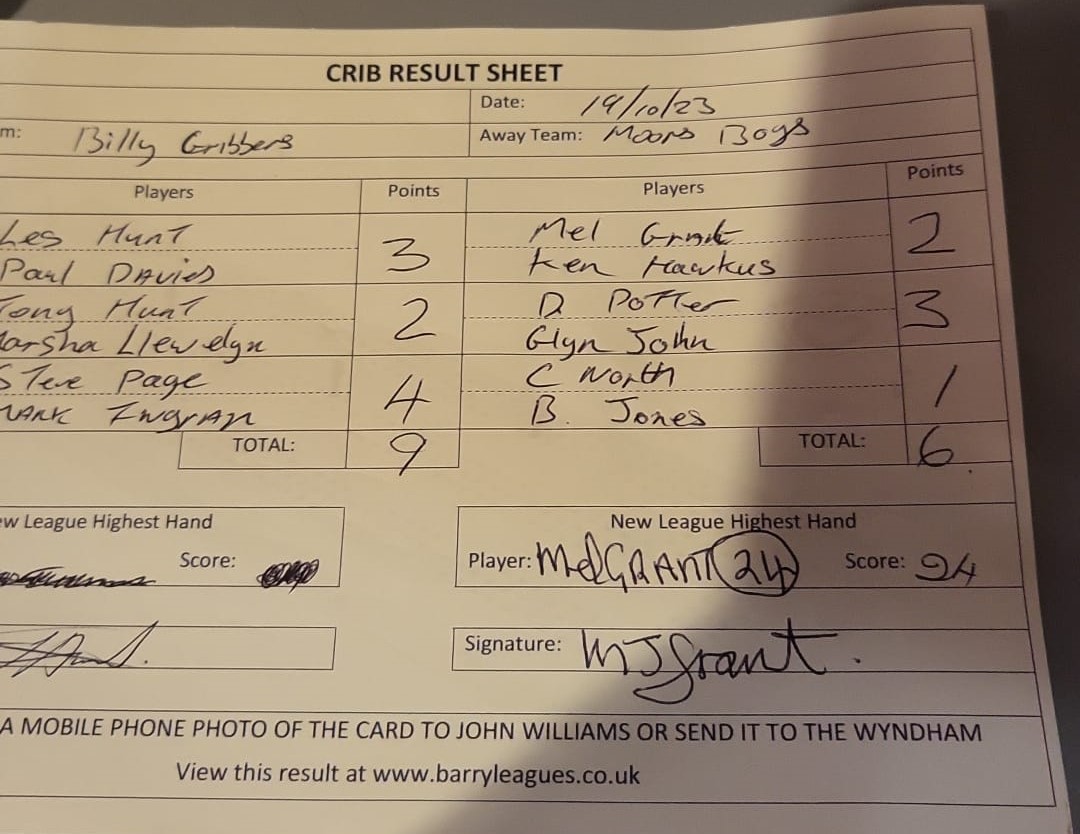 CRIB RESULT SHEET
Date: 19/10/23
m: Billy Gribbers Away Team: Moors Boys
Players Points Players Points
Les Hunt 3 Mel Grant 2
Paul Davies Ken Hawkus
Tony Hunt 2 D Potter 3
arsha Llewelyn Glyn John
Steve Page 4 C North 1
MARK Ingran B. Jones
TOTAL: 9 TOTAL: 6
ew League Highest Hand New League Highest Hand
Score: Player: Mel GRANT 24 Score: 24
Signature: MJGrant.
A MOBILE PHONE PHOTO OF THE CARD TO JOHN WILLIAMS OR SEND IT TO THE WYNDHAM
View this result at www.barryleagues.co.uk